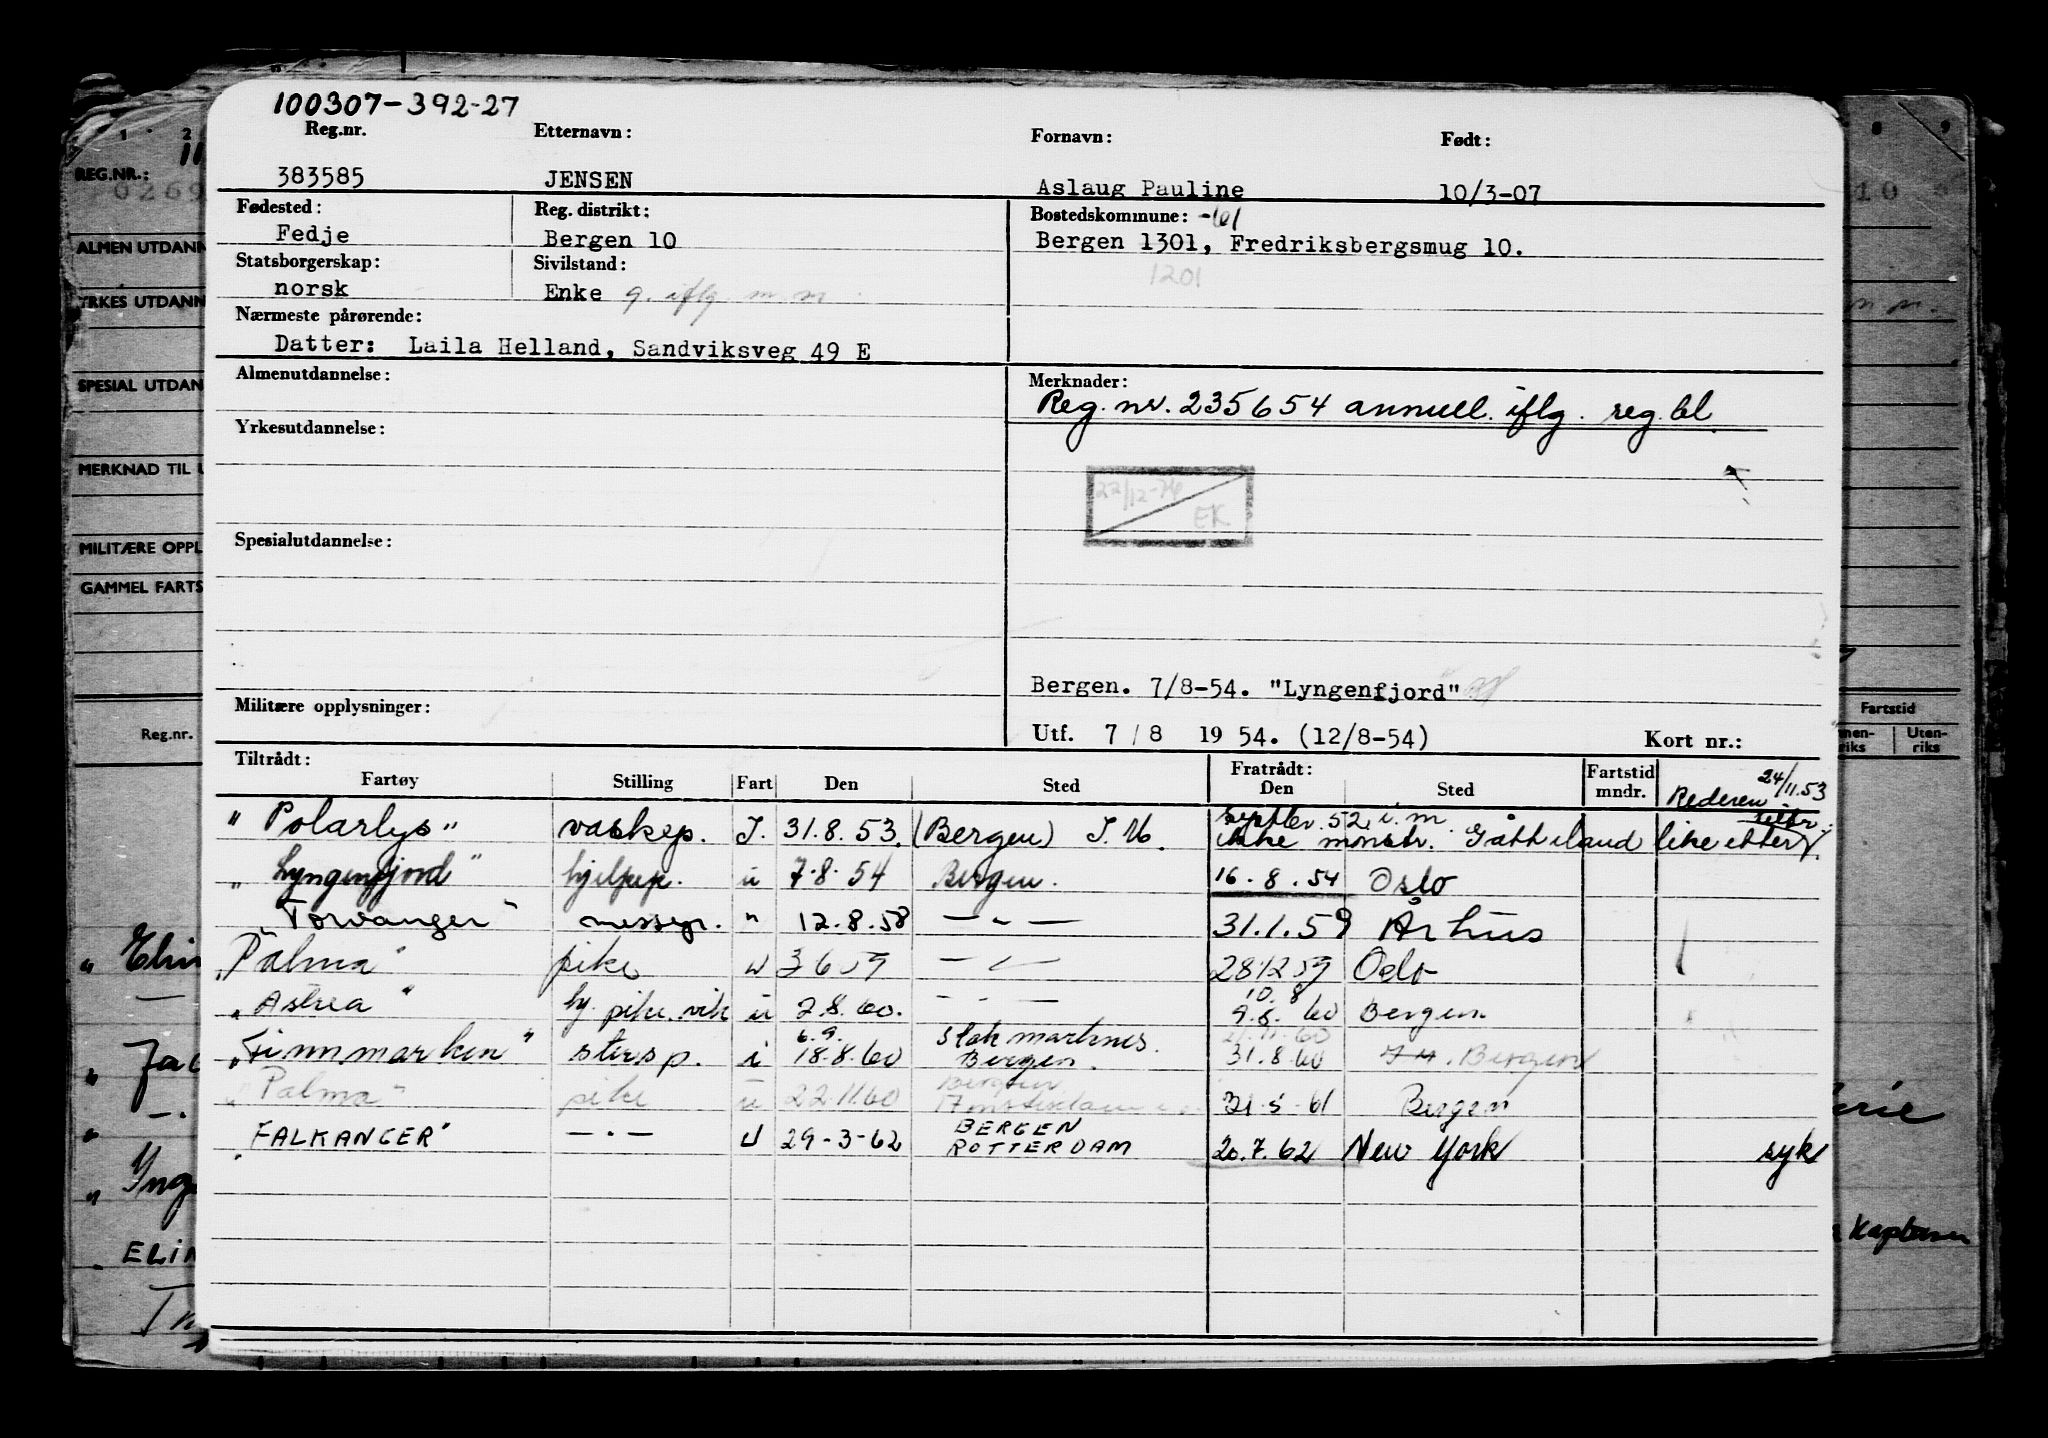 100307-392-27
Reg.nr. Etternavn: Fornavn: Født:
383585 JENSEN Aslaug Pauline 10/3-07
Fødested: Reg. distrikt: Bostedskommune: -61
Fedje Bergen 10 Bergen 1301, Fredriksbergsmug 10.
1201
Statsborgerskap: Sivilstand:
norsk Enke g. iflg. m.m.
Nærmeste pårørende:
Datter: Laila Helland, Sandviksveg 49 E
Almenutdannelse: Merknader:
Reg. nr. 235654 annull. iflg. reg.bl.
Yrkesutdannelse:
22/12-76
EK
Spesialutdannelse:
Bergen. 7/8-54. "Lyngenfjord"
Militære opplysninger:
Utf. 7/8 1954. (12/8-54) Kort nr.:
Tiltrådt: Fratrådt: Fartstid 24/11.53
Fartøy Stilling Fart Den Sted Den Sted mndr. Rederen
septbr. 52 i.m.
"Polarlys" vaskep. I. 31.8.53. (Bergen) ikke mønstr. Gått iland like etter
"Lyngenfjord" hjelpep. u 7.8.54 Bergen. 16.8.54 Oslo
"Torvanger" messep. " 12.8.58 — " — 31.1.59 Århus
"Palma" pike u 3 6 59 — " — 28/12 59 Oslo
10. 8
"Astrea" hj. pike. vik u 2.8.60. — " — 9.8. 60 Bergen
6.9. Stokmarknes.
"Finnmarken" stersp. i 18.8.60 Bergen. 31.8.60 Bergen
Bergen
"Palma" pike u 22.11.60 Amsterdam 21-5-61 Bergen
BERGEN
"FALKANGER" — " — U 29-3-62 ROTTERDAM 20.7.62 New York syk
1 2 8 9
REG.NR.:
0269 10
ALMEN UTDANN
YRKES UTDANN
SPESIAL UTDAN
MERKNAD TIL U
MILITÆRE OPPL
GAMMEL FARTS
Reg.nr. Fartstid
riks Uten-
riks
Kaptein